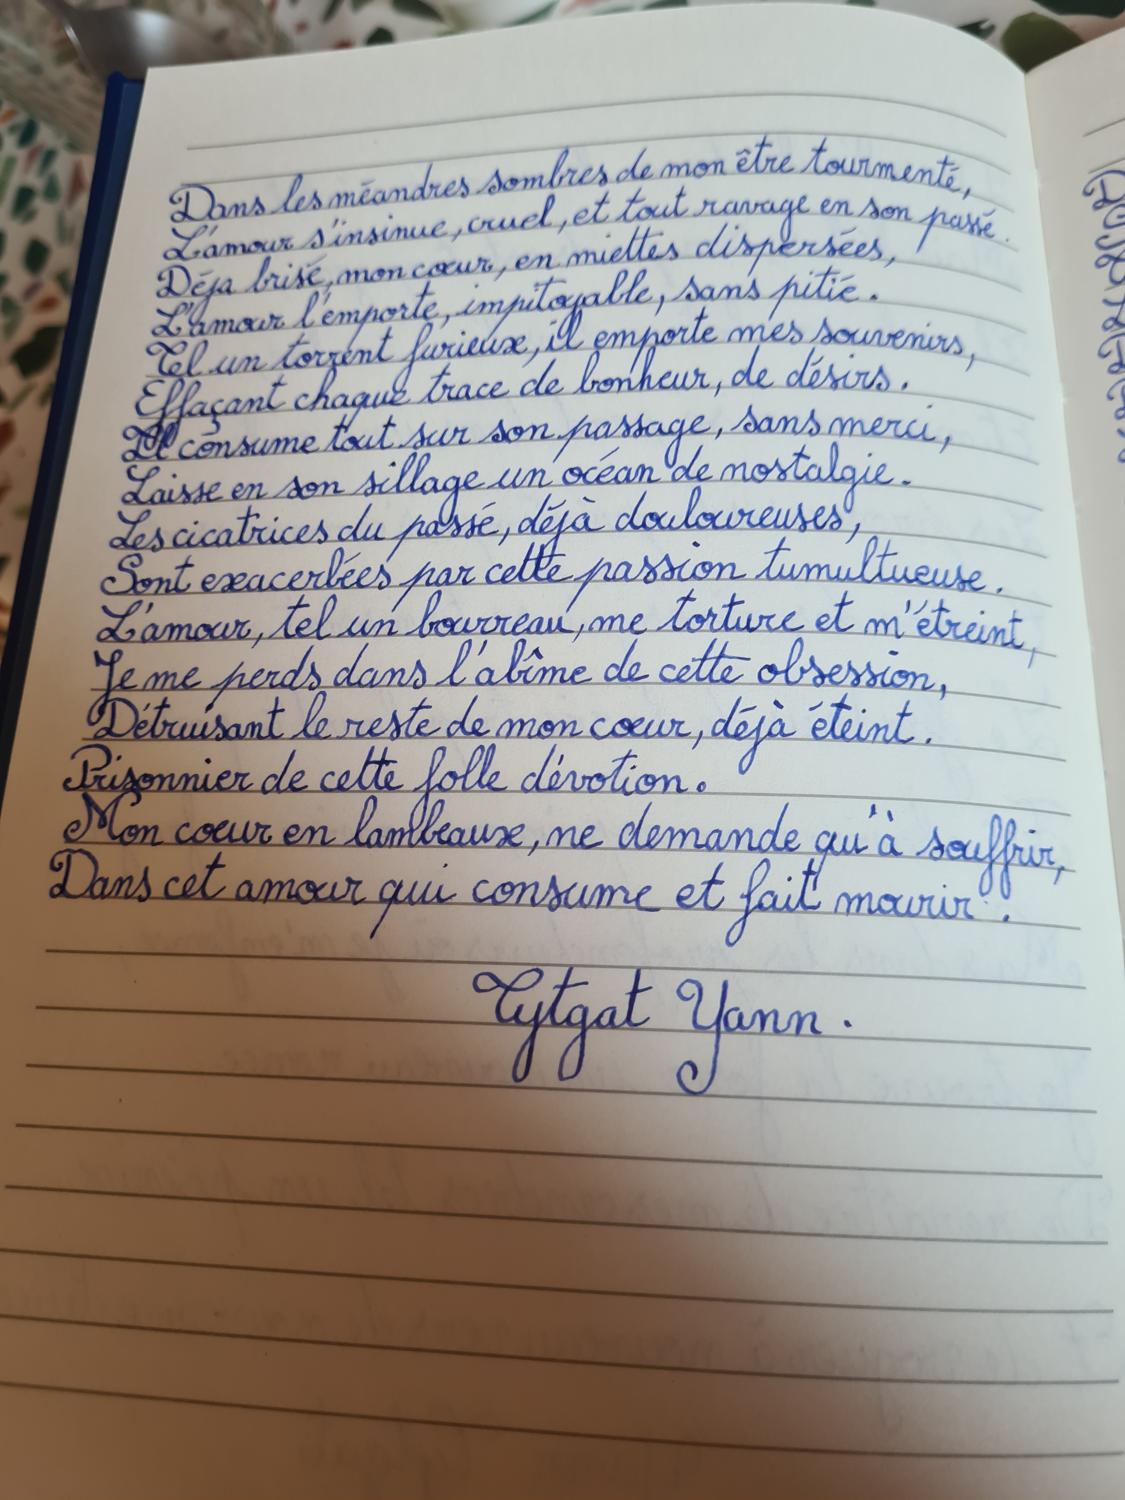 Dans les méandres sombres de mon être tourmenté,
L'amour s'insinue, cruel, et tout ravage en son passé.
Déja brisé, mon cœur, en miettes dispersées,
L'amour l'emporte, impitoyable, sans pitié.
Tel un torrent furieux, il emporte mes souvenirs,
Effaçant chaque trace de bonheur, de désirs.
Il consume tout sur son passage, sans merci,
Laisse en son sillage un océan de nostalgie.
Les cicatrices du passé, déjà douloureuses,
Sont exacerbées par cette passion tumultueuse.
L'amour, tel un bourreau, me torture et m'étreint,
Je me perds dans l'abîme de cette obsession,
Détruisant le reste de mon cœur, déjà éteint.
Prisonnier de cette folle dévotion.
Mon cœur en lambeaux, ne demande qu'à souffrir,
Dans cet amour qui consume et fait mourir.
Tytgat Yann.